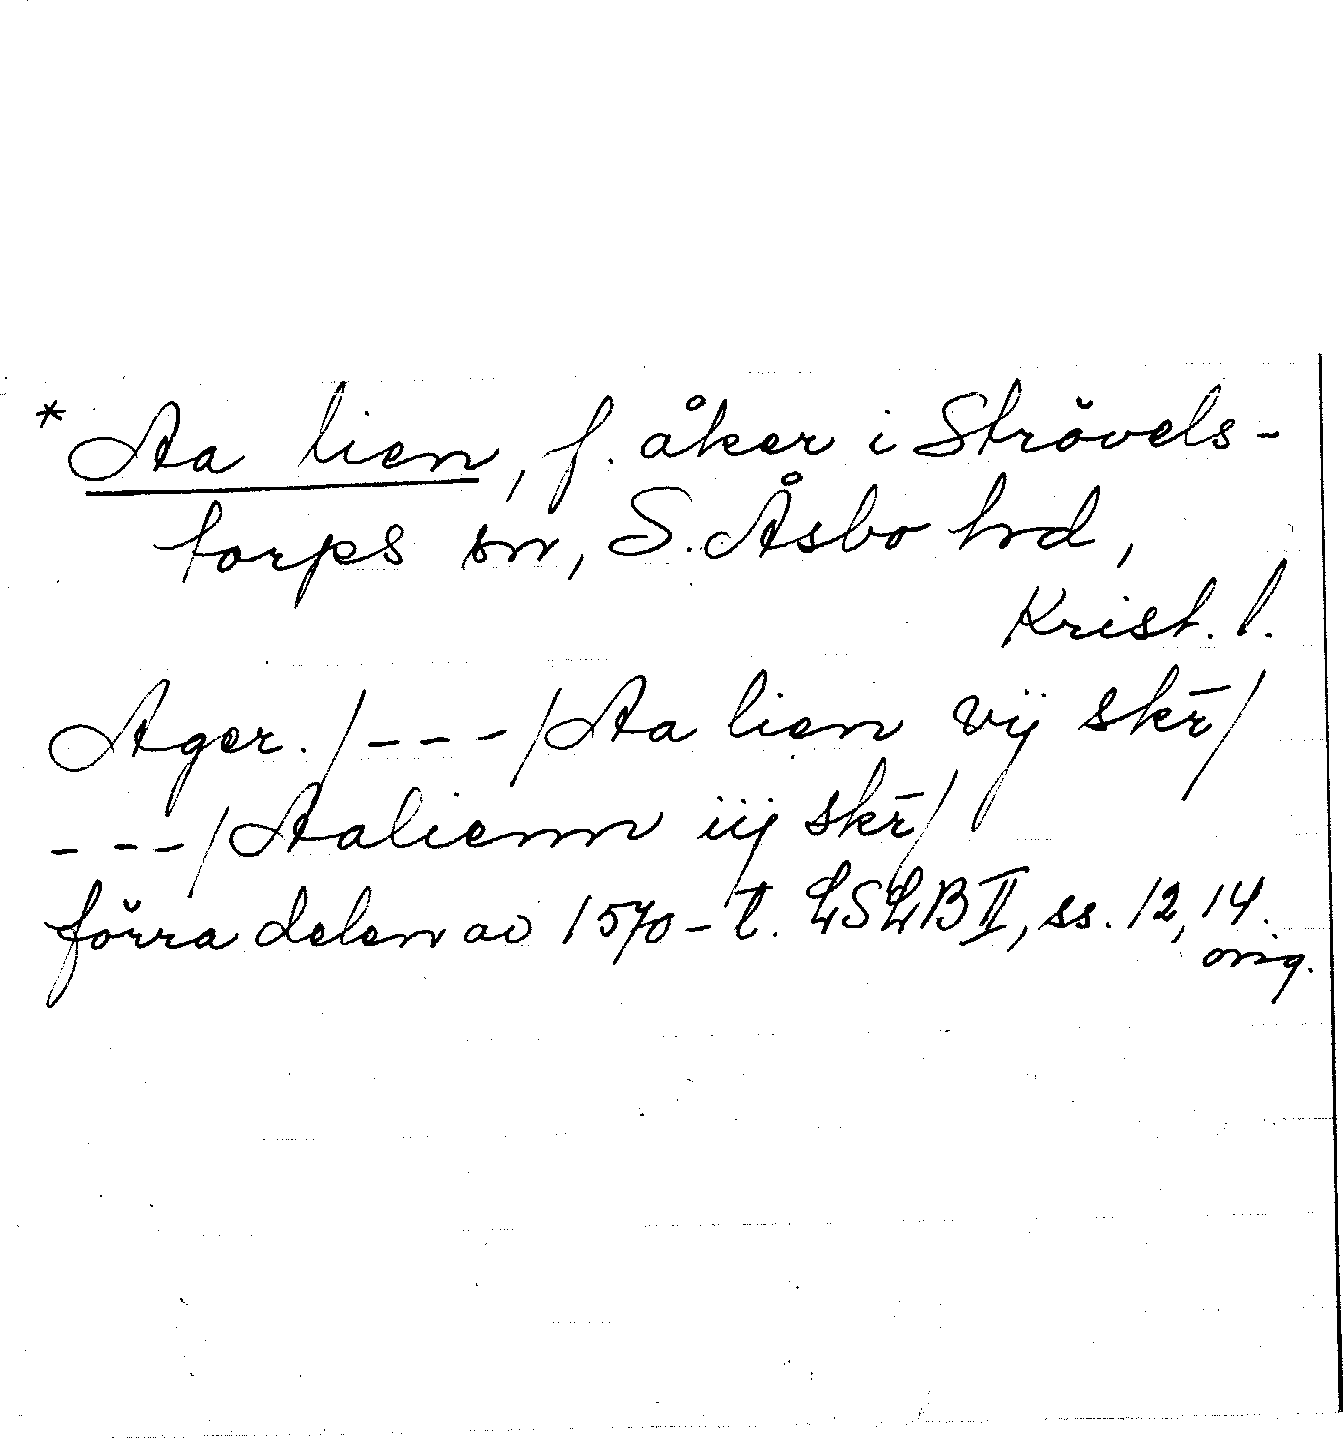 * Aa lien, f. åker i Strövels-
torps sn, S. Åsbo hd,
Krist. l.
Ager. / --- / Aa lien vij skr̄ /
--- / Aalienn iij skr̄ /
förra delen av 1570-t. LSLB II, ss. 12, 14.
orig.